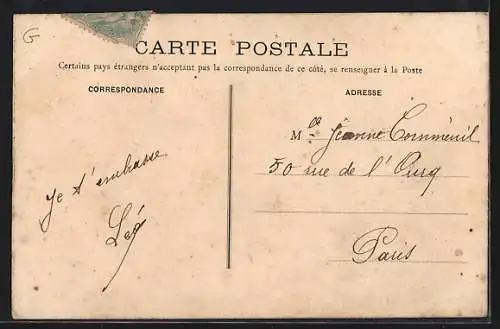 G
CARTE POSTALE
Certains pays étrangers n'acceptant pas la correspondance de ce côté, se renseigner à la Poste
CORRESPONDANCE
Je t'embrasse
ADRESSE
Mlle Jeanne Corméneuil
50 rue de l'Ourq
Paris